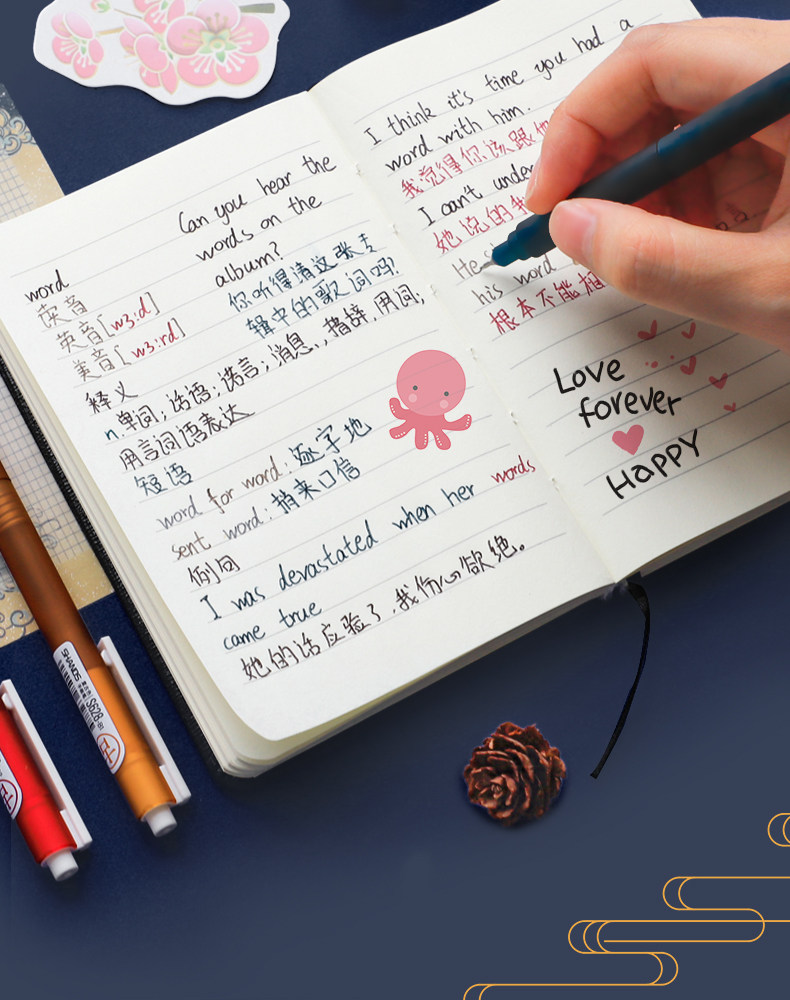 word
英音
英音[w3:d]
美音[w3:rd]
释义
n.单词;话语;诺言;消息;,措辞,用词;
用言词语表达
短语
word for word:逐字地
sent word:捎来口信
例句
I was devastated when her words
came true
她的话应验了,我伤心欲绝。
Can you hear the
words on the
album?
你听得清这张专
辑中的歌词吗?
I think it's time you had a
word with him.
我觉得你该跟他
I can't unde
她说的我
He
his word
根本不能
Love
forever
HAPPY
SHANGS
S628